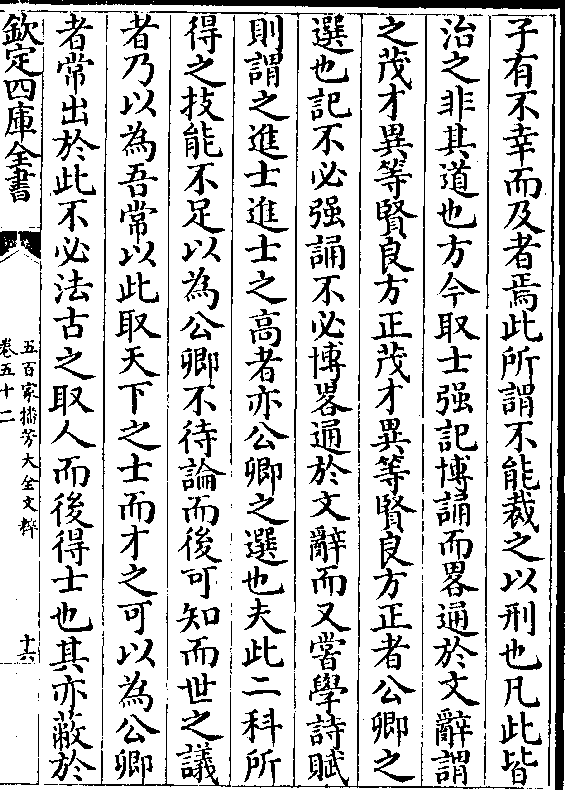 子有不幸而及者焉此所謂不能裁之以刑也凡此皆
治之非其道也方今取士强記博誦而畧通於文辭謂
之茂才異等賢良方正茂才異等賢良方正者公卿之
選也記不必强誦不必博畧通於文辭而又嘗學詩賦
則謂之進士進士之高者亦公卿之選也夫此二科所
得之技能不足以為公卿不待論而後可知而世之議
者乃以為吾常以此取天下之士而才之可以為公卿
者常出於此不必法古之取人而後得士也其亦蔽於
欽定四庫全書
五百家播芳大全文粹
卷五十二
十六